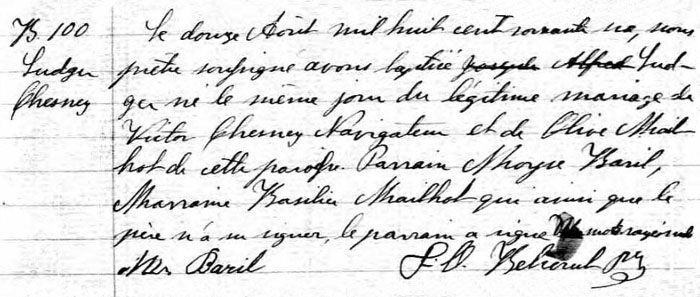 B. 100
Ludger
Chesney
Le douze Août mil huit cent soixante un, nous
prêtre soussigné avons baptisé Joseph Alfred Lud-
ger né le même jour du légitime mariage de
Victor Chesney Navigateur et de Olive Mail-
hot de cette paroisse. Parrain Moyse Baril,
Marraine Basilice Mailhot qui ainsi que le
père n'a su signer, le parrain a signé mots rayés nuls
Mes Baril